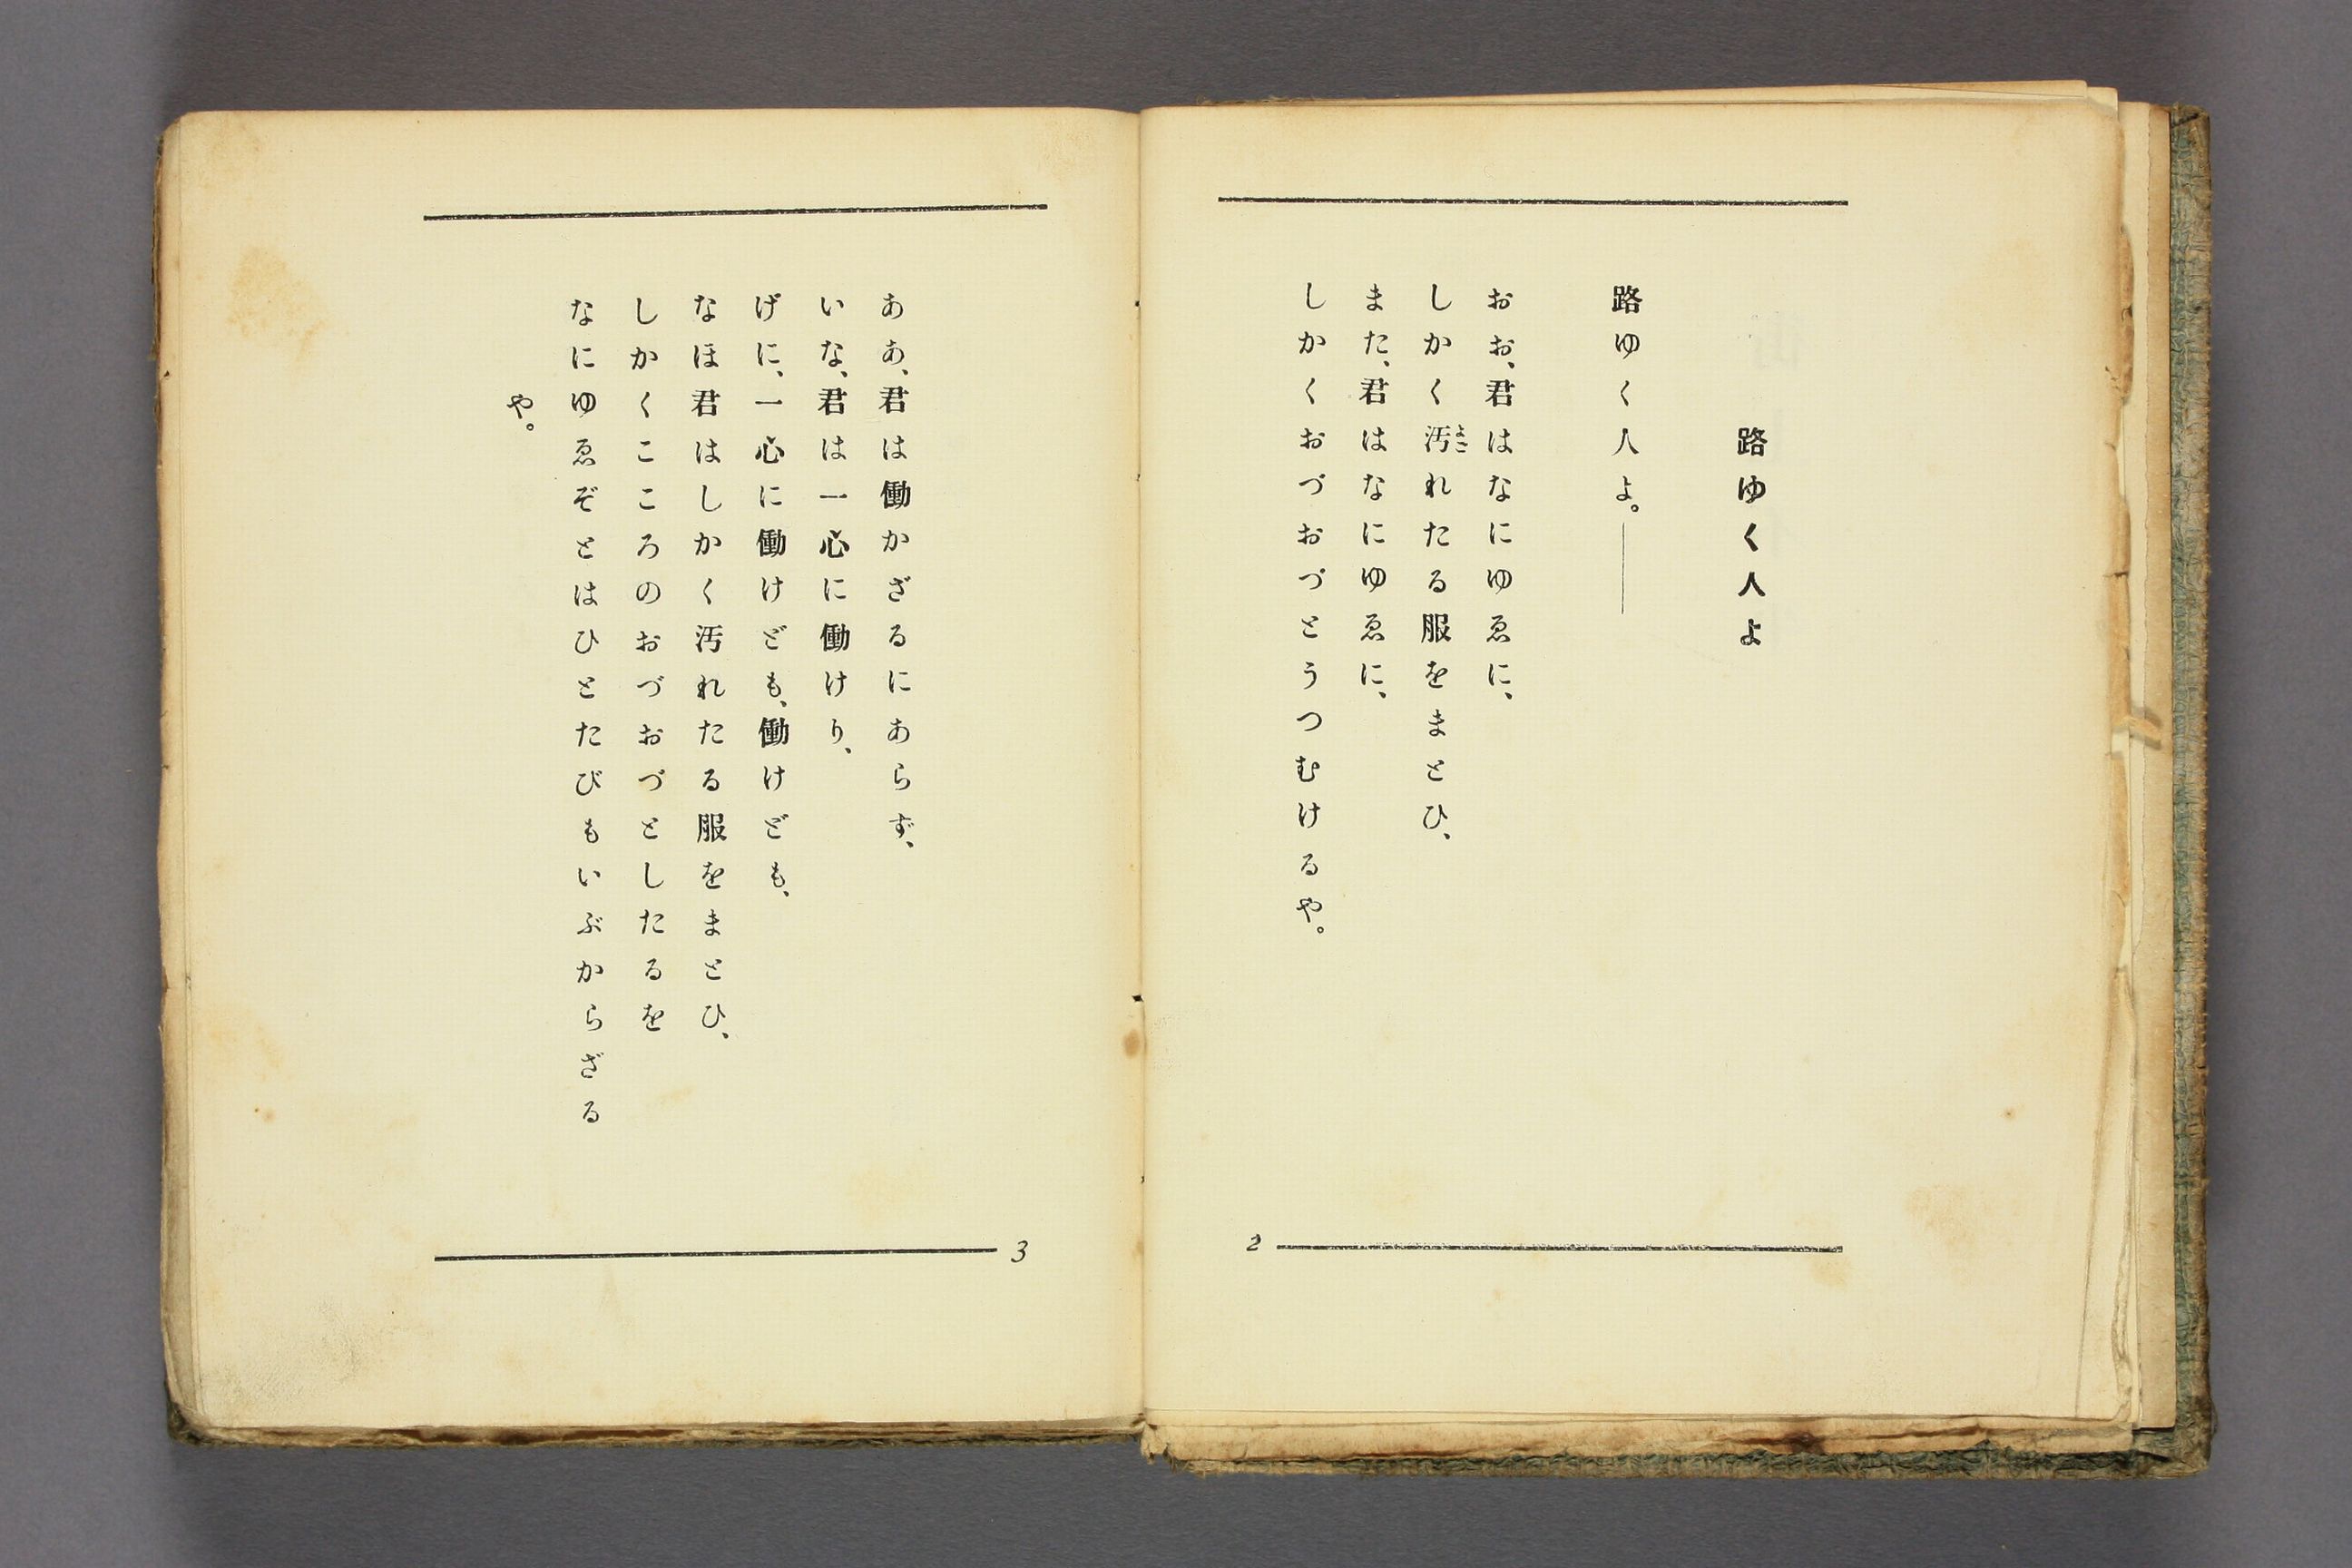 路ゆく人よ
路ゆく人よ。――
おお、君はなにゆゑに、
しかく汚れたる服をまとひ、
また、君はなにゆゑに、
しかくおづおづとうつむけるや。
2
ああ、君は働かざるにあらず、
いな、君は一心に働けり、
げに、一心に働けども、働けども、
なほ君はしかく汚れたる服をまとひ、
しかくこころのおづおづとしたるを
なにゆゑぞとはひとたびもいぶからざる
や。
3